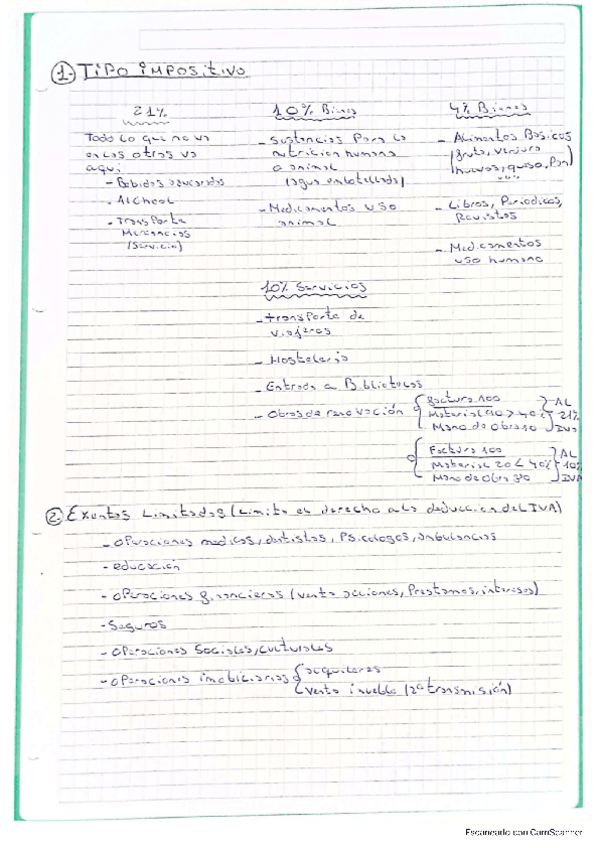 ① TIPO IMPOSITIVO
21%
Todo lo que no va
en los otros va
aqui
- Bebidas azucaradas
- Alcohol
- Transporte
Mercancias
(Servicio)
10% Bienes
- Sustancias Para la
nutricion humana
o animal
(agua embotellada)
- Medicamentos uso
animal
4% Bienes
- Alimentos Basicos
(fruta, verdura
huevos, queso, Pan)
- Libros, Periodicos,
Revistas
- Medicamentos
uso humano
10% Servicios
- Transporte de
viajeros
- Hosteleria
- Entrada a Bibliotecas
- Obras de renovación
Factura 100
Material 90 > 40%
Mano de obra 10
AL
21%
IVA
Factura 100
Material 20 < 40%
Mano de obra
AL
10%
IVA
② Exentas Limitadas (Limita el derecho a la deduccion del IVA)
- Operaciones medicas, dentistas, Psicologos, ambulancias
- educación
- Operaciones financieras (venta acciones, Prestamos, intereses)
- Seguros
- Operaciones Sociales, culturales
- Operaciones imobiliarias
alquileres
venta (2ª transmisión)
Escaneado con CamScanner